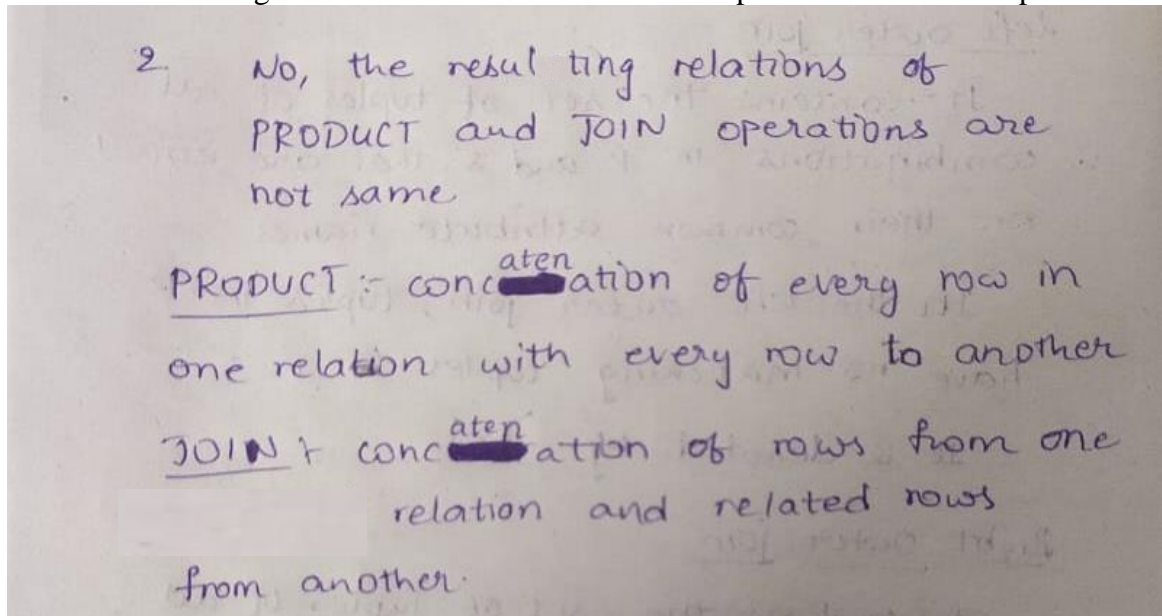 2. No, the resul ting relations of
PRODUCT and JOIN operations are
not same
PRODUCT :- concatenation of every row in
one relation with every row to another
JOIN :- concatenation of rows from one
relation and related rows
from another.